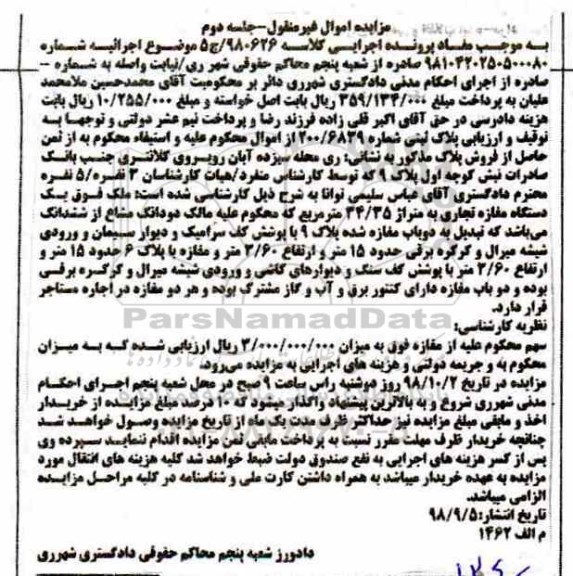 مزایده اموال غیرمنقول-جلسه دوم
به موجب مفاد پرونده اجرایی کلاسه ۹۸۰۶۲۶/ج۵ موضوع اجرائیه شماره
۹۸۱۰۴۲۰۲۵۰۵۰۰۰۸۰ صادره از شعبه پنجم محاکم حقوقی شهر ری/نیابت واصله به شماره –
صادره از اجرای احکام مدنی دادگستری شهرری دائر بر محکومیت آقای محمدحسین ملامحمد
علیان به پرداخت مبلغ ۳۵۹/۱۳۴/۰۰۰ ریال بابت اصل خواسته و مبلغ ۱۰/۲۵۵/۰۰۰ ریال بابت
هزینه دادرسی در حق آقای اکبر قلی زاده فرزند رضا و پرداخت نیم عشر دولتی و توجها به
توقیف و ارزیابی پلاک ثبتی شماره ۲۰۰/۶۸۳۹ از اموال محکوم علیه و استیفاء محکوم به از ثمن
حاصل از فروش پلاک مذکور به نشانی: ری محله سیزده آبان روبروی کلانتری جنب بانک
صادرات نبش کوچه اول پلاک ۹ که توسط کارشناس منفرد/هیات کارشناسان ۳ نفره/۵ نفره
محترم دادگستری آقای عباس سلیمی توانا به شرح ذیل کارشناسی شده است: ملک فوق یک
دستگاه مغازه تجاری به متراژ ۳۴/۳۵ مترمربع که محکوم علیه مالک دودانگ مشاع از ششدانگ
می‌باشد که تبدیل به دوباب مغازه شده پلاک ۹ با پوشش کف سرامیک و دیوار سیمان و ورودی
شیشه میرال و کرکره برقی حدود ۱۵ متر و ارتفاع ۲/۶۰ متر و مغازه با پلاک ۶ حدود ۱۵ متر و
ارتفاع ۲/۶۰ متر با پوشش کف سنگ و دیوارهای کاشی و ورودی شیشه میرال و کرکره برقی
بوده و دو باب مغازه دارای کنتور برق و آب و گاز مشترک بوده و هر دو مغازه در اجاره مستاجر
قرار دارد.
ParsNamadData
نظریه کارشناسی:
سهم محکوم علیه از مغازه فوق به میزان ۳/۰۰۰/۰۰۰/۰۰۰ ریال ارزیابی شده که به میزان
محکوم به و جریمه دولتی و هزینه های اجرایی به مزایده می‌رود.
مزایده در تاریخ ۹۸/۱۰/۲ روز دوشنبه راس ساعت ۹ صبح در محل شعبه پنجم اجرای احکام
مدنی شهرری شروع و به بالاترین پیشنهاد واگذار میشود که ۱۰ درصد مبلغ مزایده از خریدار
اخذ و مابقی مبلغ مزایده نیز حداکثر ظرف مدت یک ماه از تاریخ مزایده وصول خواهد شد
چنانچه خریدار ظرف مهلت مقرر نسبت به پرداخت مابقی ثمن مزایده اقدام ننماید سپرده وی
پس از کسر هزینه های اجرایی به نفع صندوق دولت ضبط خواهد شد کلیه هزینه های انتقال مورد
مزایده به عهده خریدار میباشد به همراه داشتن کارت ملی و شناسنامه در کلیه مراحل مزایده
الزامی میباشد.
تاریخ انتشار: ۹۸/۹/۵
م الف ۱۴۶۲
دادورز شعبه پنجم محاکم حقوقی دادگستری شهرری